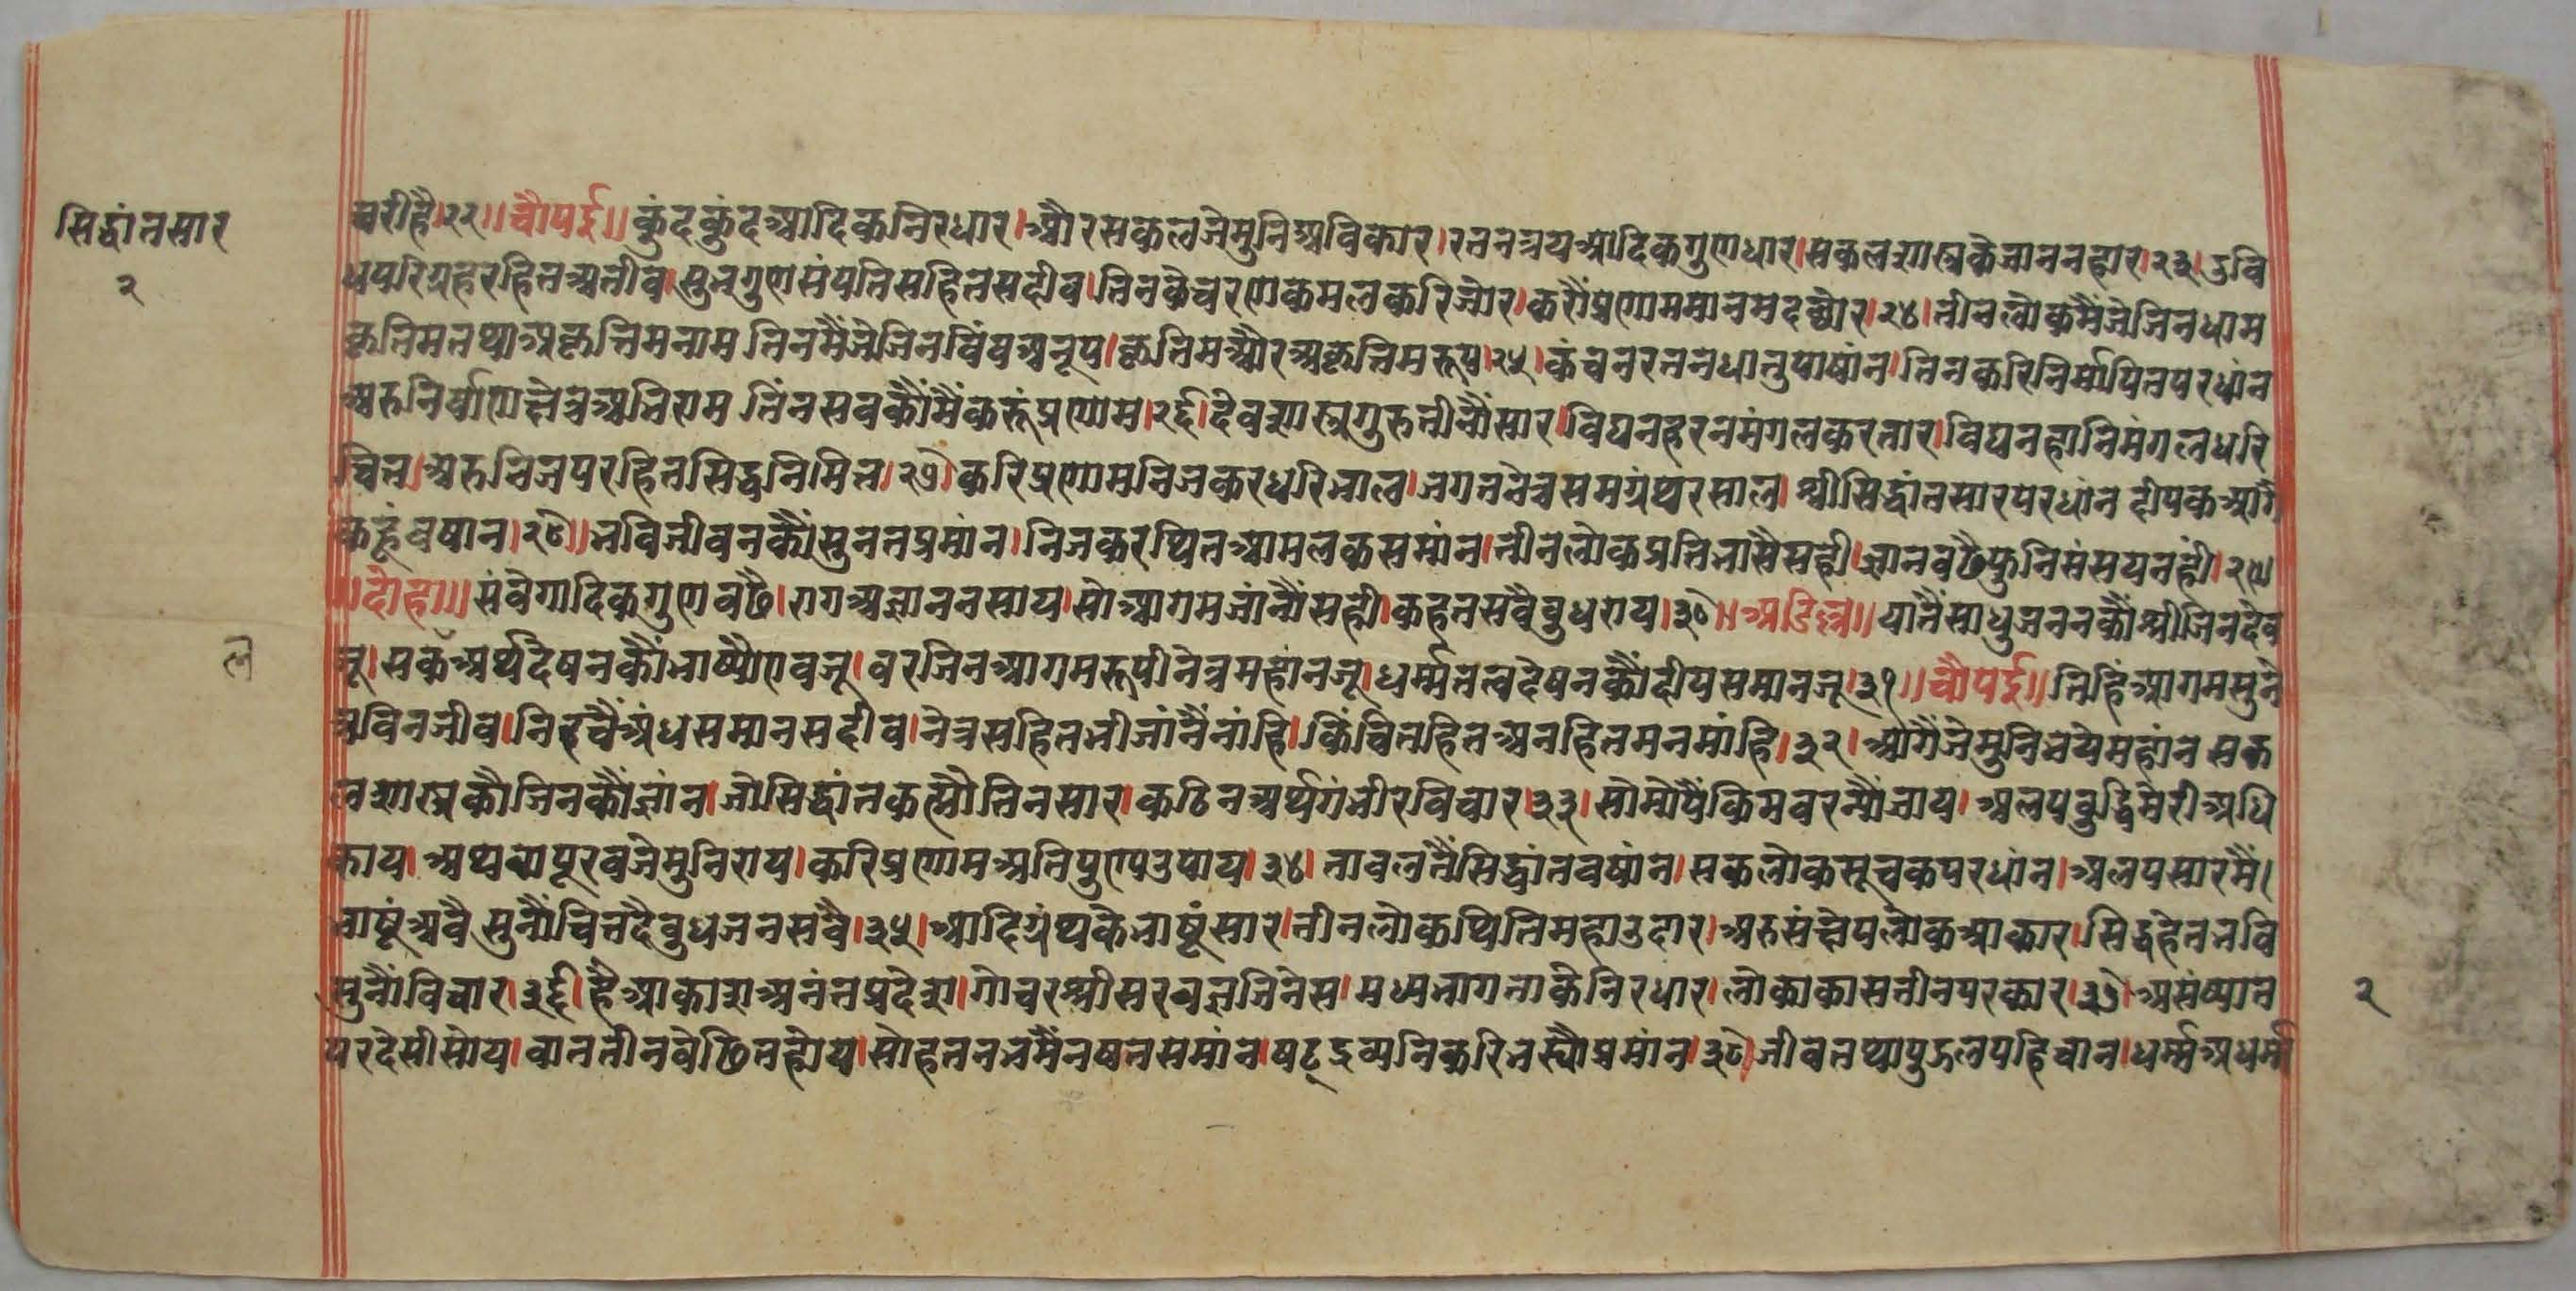 सिद्धांतसार
२
चरीहै।२२॥चौपई॥कुंदकुंदआदिकनिरधार।औरसकलजेमुनिअविकार।रतनत्रयआदिकगुणधार।सकलशास्त्रकेजाननहार।२३।दुवि
धपरिग्रहरहितअतीव।सुनगुणसंपतिसहितसदीव।तिनकेचरणकमलकरिजोर।करौंप्रणाममानमदछोर।२४।तीनलोकमैंजेजिनधाम
कृतिमतथाअकृत्तिमनाम तिनमैंजेजिनविंवअनूप।कृतिमऔरअकृत्तिमरूप।२५।कंचनरतनधातुपाषांन।तिनकरिनिर्मापितपरधांन
अरुनिर्वाणक्षेत्रअतिराम तिंनसवकौंमैंकरूंप्रणाम।२६।देवशास्त्रगुरुतीनौंसार।विघनहरनमंगलकरतार।विघनहानिमंगलधरि
चित।अरुनिजपरहितसिद्धनिमित।२७।करिप्रणामनिजकरधरिभाल।जगतनेत्रसमग्रंथरसाल।श्रीसिद्धांतसारपरधांन दीपकआगै
कहूंवषान।२८।भविजीवनकौंसुनतप्रमांन।निजकरथितआमलकसमांन।तीनलोकप्रतिभासैसही।ज्ञानवढैफुनिसंसयनहीं।२९।
॥दोहा॥संवेगादिकगुणवढै।रागअज्ञाननसाय।सोआगमजांनौंसही।कहतसवैवुधराय।३०॥अडिल्ल॥यातैंसाधुजननकौंश्रीजिनदेव
जू।सकअर्थदेषनकौंभाष्यौएवजू।वरजिनआगमरूपीनेत्रमहांनजू।धर्म्मतत्वदेषनकौंदीपसमानजू।३१॥चौपई॥तिहिंआगमसुने
ल
भविनजीव।निहचैंअंधसमानसदीव।नेत्रसहितभीजांनैंनांहि।किंचितहितअनहितमनमांहि।३२।आगैंजेमुनिभयेमहांन सक
लशास्त्रकौजिनकौंज्ञांन।जोसिद्धांतकह्यौतिनसार।कठिनअर्थगंभीरविचार।३३।सोमोपैंकिमवरन्यौंजाय।अलपवुद्धिमेरीअधि
काय।अथवापूरवजेमुनिराय।करिप्रणामअतिपुण्यउपाय।३४।तावलतैंसिद्धांतवषांन।सकलोकसूचकपरधांन।अलपसारमैं।
भाषूंअवै सुनौंचितदैवुधजनसवै।३५।आदिग्रंथकेभाषूंसार।तीनलोकथितिमहाउदार।अरुसंक्षेपलोकआकार।सिद्धहेतभवि
सुनौंविचार।३६।हैआकाशअनंतप्रदेश।गोचरश्रीसरवज्ञजिनेस।मध्यभागताकेनिरधार।लोकाकासतीनपरकार।३७।असंष्यात
२
परदेसीसोय।वाततीनवेढितहोय।सोहतनभमैंनषतसमांन।षट्द्रव्यनिकरिभस्यौप्रमांन।३८।जीवतथापुद्गलपहिचान।धर्म्मअधर्म्म